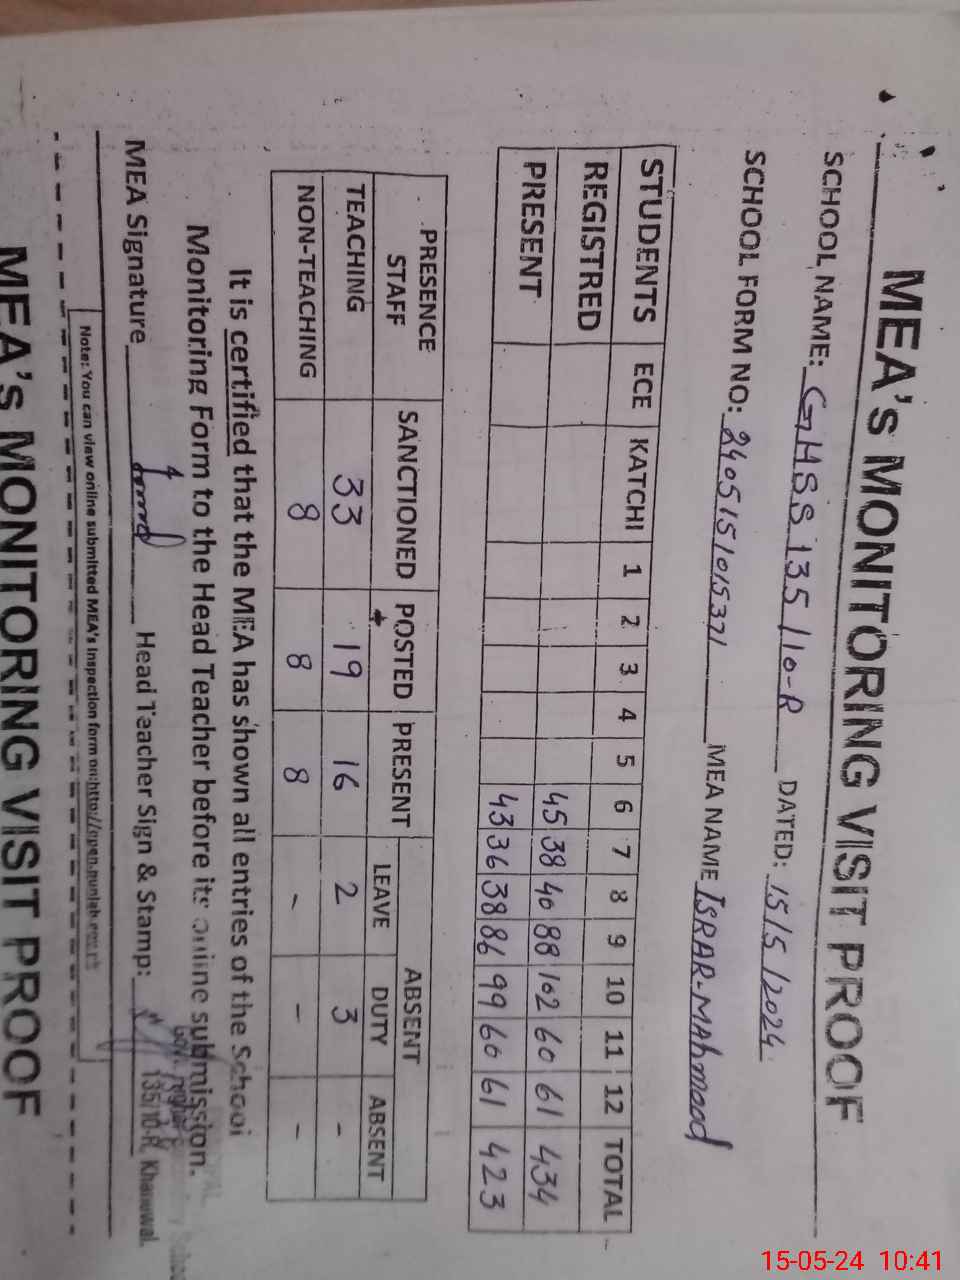 MEA's MONITORING VISIT PROOF
SCHOOL NAME: GHSS 135/10-R DATED: 15/5/2024
SCHOOL FORM NO: 2405151015371 MEA NAME ISRAR-MAhmood
STUDENTS ECE KATCHI 1 2 3 4 5 6 7 8 9 10 11 12 TOTAL
REGISTRED 45 38 40 88 102 60 61 434
PRESENT 43 36 38 86 99 60 61 423
PRESENCE STAFF SANCTIONED POSTED PRESENT ABSENT
LEAVE DUTY ABSENT
TEACHING 33 19 16 2 3 -
NON-TEACHING 8 8 8 - - -
It is certified that the MEA has shown all entries of the School
Monitoring Form to the Head Teacher before its online submission.
MEA Signature Head Teacher Sign & Stamp:
135/10-R, Khanewal.
Note: You can view online submitted MEA's Inspection form on:http://open.punjab.gov.pk
MEA's MONITORING VISIT PROOF
15-05-24 10:41